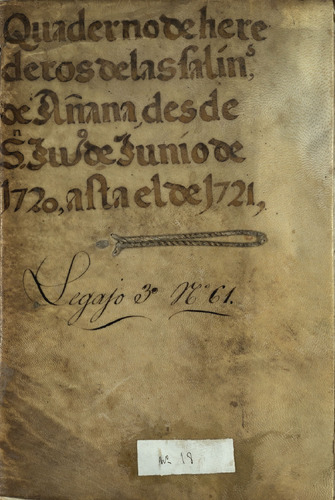 Quaderno de here
deros de las salin.s
de Añana, desde
S.n Ju.o de Junio de
1720, asta el de 1721,
Legajo 3º Nº 61.
Nº 19